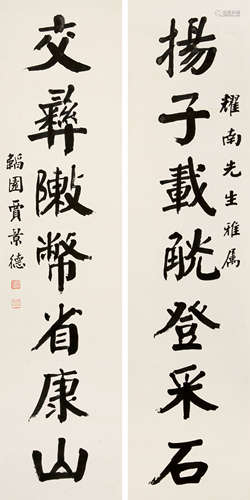 耀南先生雅属
揚子載觥登采石
交彝敶幣省康山
韜園賈景德